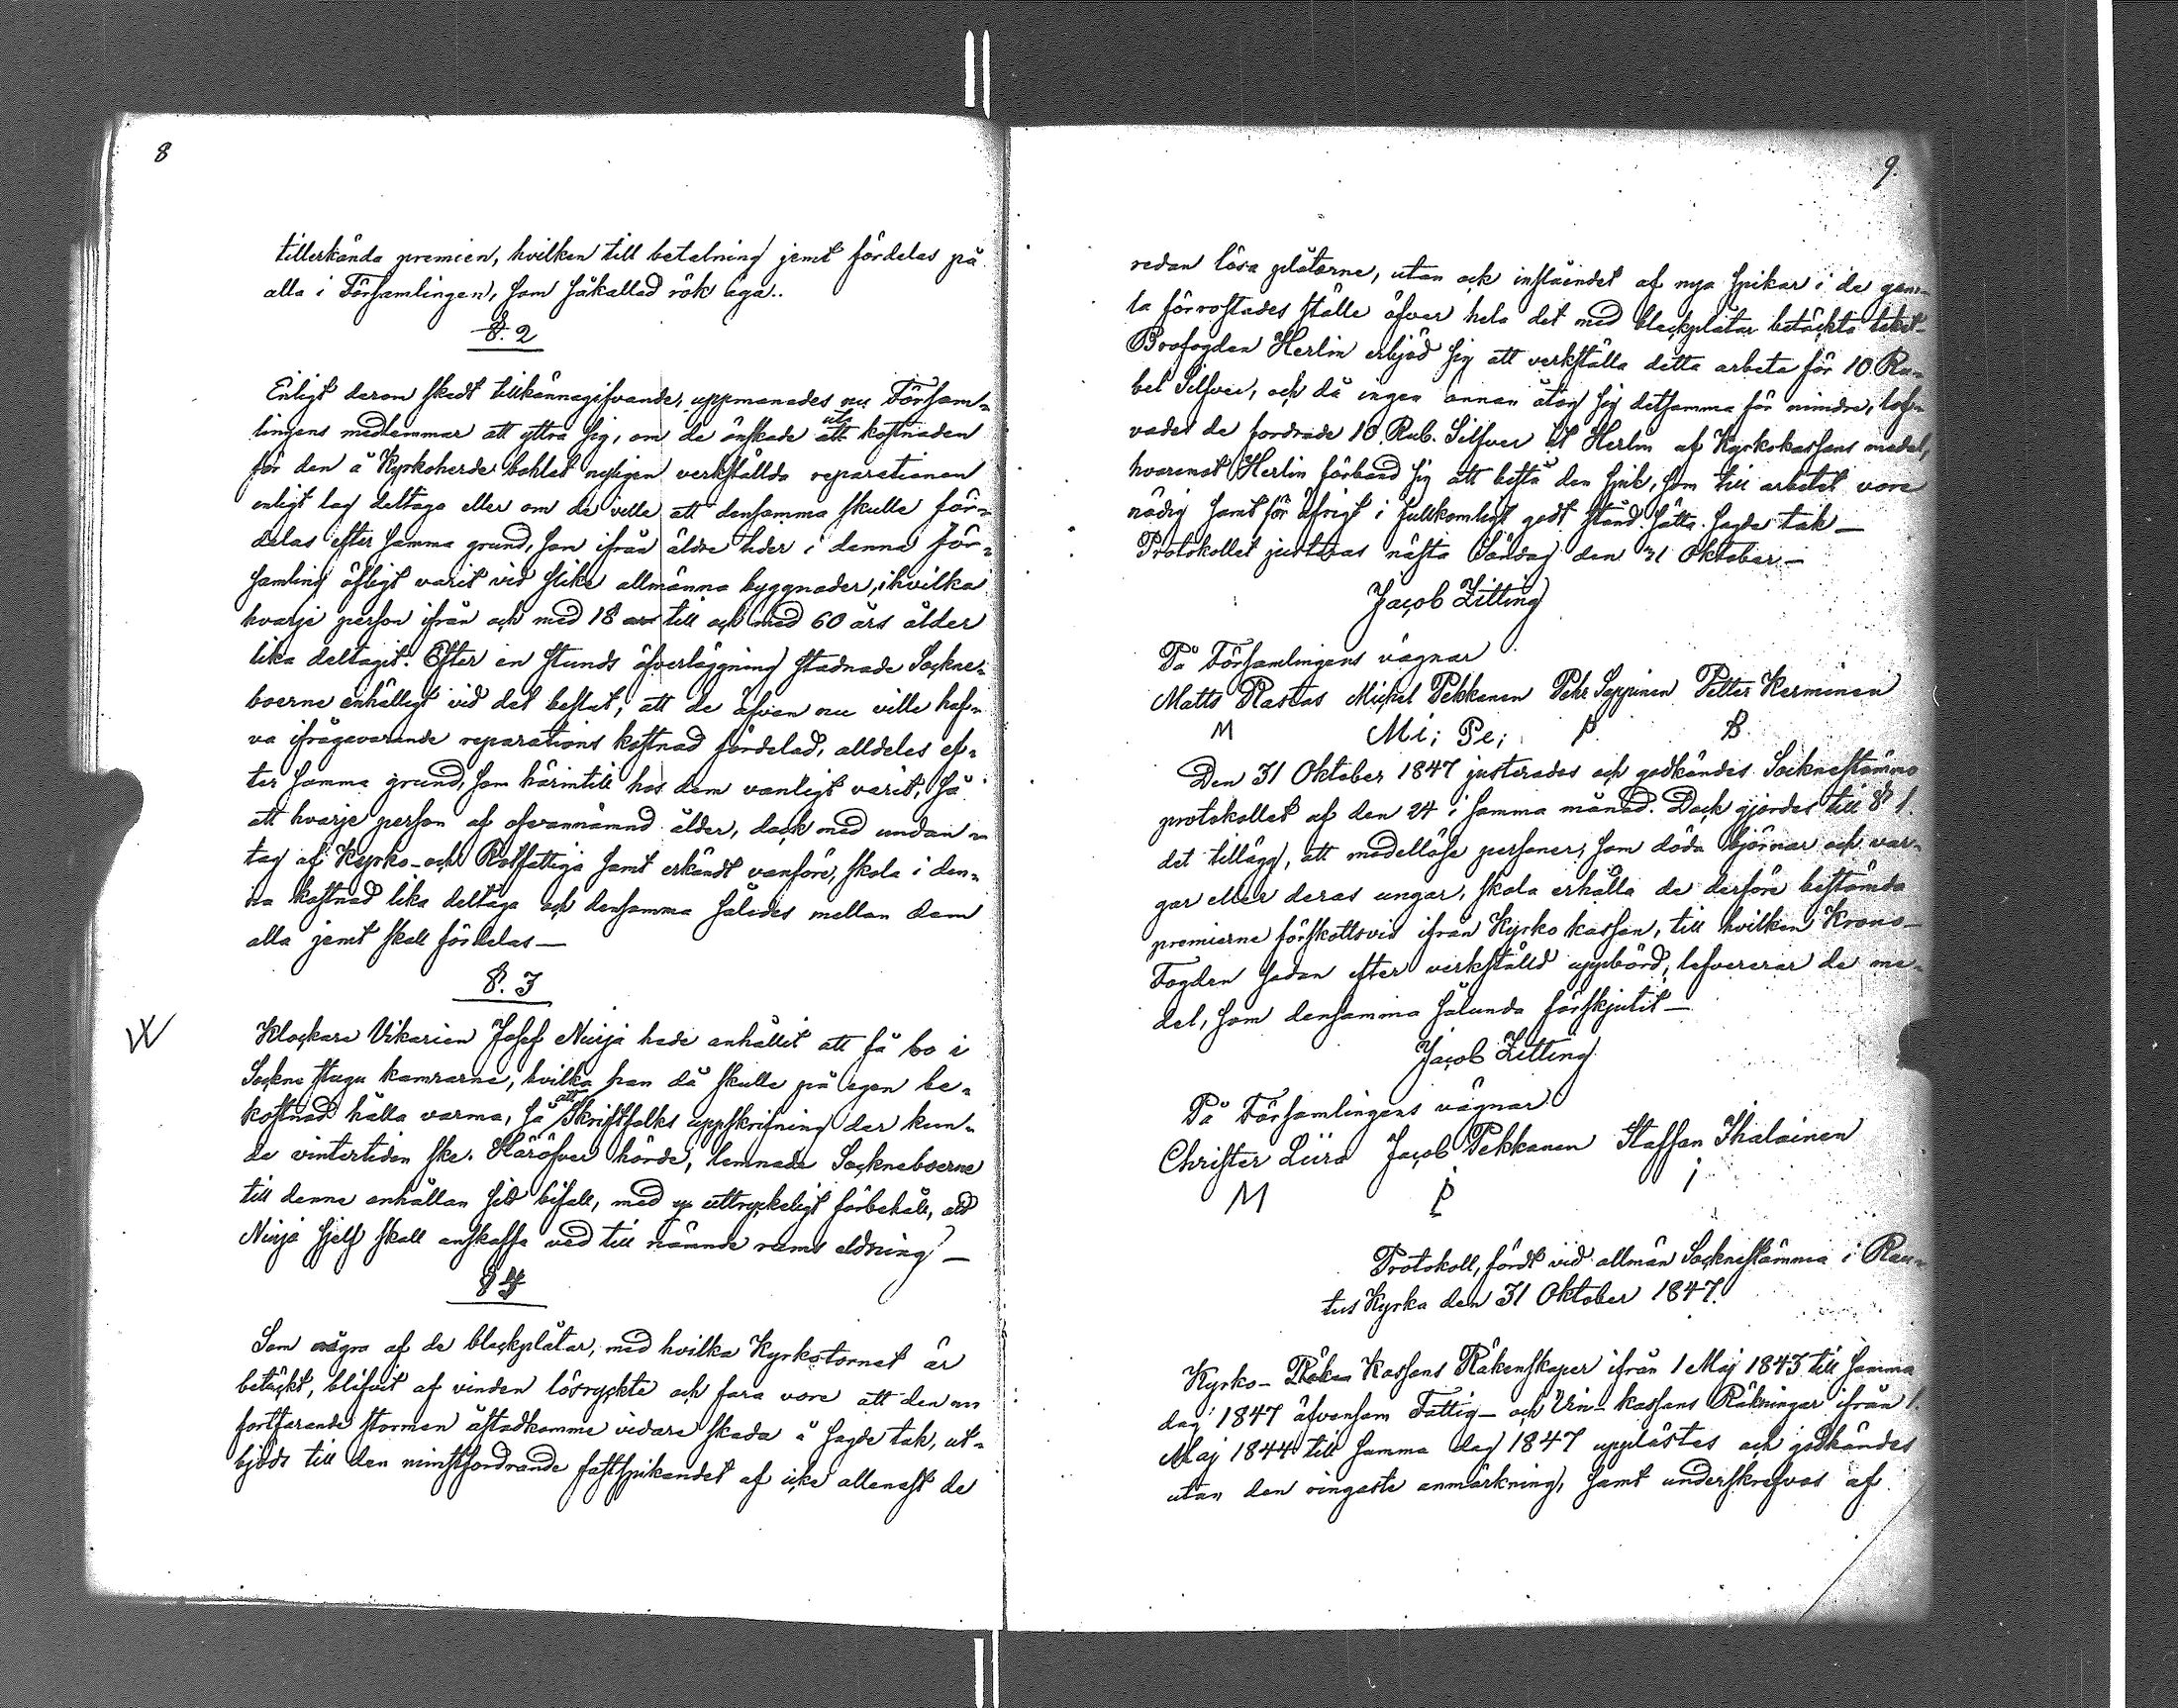 8
tillerkända premien, hvilken till betalning jemt fördelas på
alla i Församlingen, som såkallad rök äga..
§. 2
Enligt derom skedt tillkännagifvande, uppmanades nu Försam-
lingens medlemmar att yttra sig, om de önskade uti kostnaden
för den å Kyrkoherde bohlet nyligen verkställda reparationen
enligt lag deltaga eller om de ville att densamma skulle för-
delas efter samma grund, som ifrån äldre tider i denna För-
samling öfligt varit vid slike allmänna byggnader, i hvilka
hvarje person ifrån och med 18 till och med 60 års ålder
lika deltagit. Efter en stunds öfverläggning stadnade Sockne-
boerne enhälligt vid det beslut, att de äfven nu ville haf-
va ifrågavarande reparations kostnad fördelad, alldeles ef-
ter samma grund, som härintill hos dem vanligt varit, så
att hvarje person af ofvannämnd ålder, dock med undan-
tag af Kyrko- och Rotfattiga samt erkändt vanföre, skola i den-
na kostnad lika deltaga och densamma således mellan dem
alla jemt skall fördelas—
§. 3
Klockare Vikarien Josef Nuija hade anhållit att få bo i
Sockne stugu kamrarne, hvilka han då skulle på egen be-
kostnad hålla varma, så att Skriftfolks uppskrifning der kun-
de vintertiden ske. Häröfver hörde, lemnade Sockneboerne
till denna anhållan sitt bifall, med uttryckeligt förbehåll, att
Nuija sjelf skall anskaffa ved till nämnde rums eldning—
§ 4
Som några af de bleckplåtar, med hvilka Kyrkotornet är
betäckt, blifvit af vinden lösryckte och fara vore att den nu
fortfarande stormen åstadkomme vidare skada å sagde tak, ut-
bjöds till den minstfordrande fastspikandet af icke allenast de
9.
redan lösa plåtarne, utan ock inslåendet af nya spikar i de gam-
la förrostades ställe öfver hela det med bleckplåtar betäckta taket-
Brofogden Herlin erbjöd sig att verkställa detta arbete för 10 Ru-
bel Silfver, och då ingen annan åtog sig detsamma för mindre, lof-
vades de fordrade 10 Rub. Silfver åt Herlin af Kyrkokassans medel,
hvaremot Herlin förband sig att bestå den spik, som till arbetet vore
nödig samt för öfrigt i fullkomligt godt stånd sätta sagde tak—
Protokollet justeras nästa Söndag den 31 Oktober.—
Jacob Zitting
På Församlingens vägnar
Matts Rastas Michel Pekkanen Pehr Seppinen Petter Kerminen
M Mi; Pe; P B
Den 31 Oktober 1847 justerades och godkändes Socknestämmo
protokollet af den 24 i samma månad. Dock gjordes till § 1.
det tillägg, att medellösa personer, som döda björnar och var-
gar eller deras ungar, skola erhålla de derföre bestämda
premierne förskottsvis ifrån Kyrko kassan, till hvilken Krono-
Fogden sedan efter verkställd uppbörd, lefvererar de me-
del, som densamma sålunda förskjutit—
Jacob Zitting
På Församlingens vägnar
Christer Liira Jacob Pekkanen Staffan Ihalainen
M P i
Protokoll, fördt vid allmän Socknestämma i Rau-
tus Kyrka den 31 Oktober 1847.
Kyrko- Kassans Räkenskaper ifrån 1 Maj 1843 till samma
dag 1847 äfvensom Fattig- och Vin- kassans Räkningar ifrån 1.
Maj 1844 till samma dag 1847 upplästes och godkändes
utan den ringaste anmärkning, samt underskrefvos af